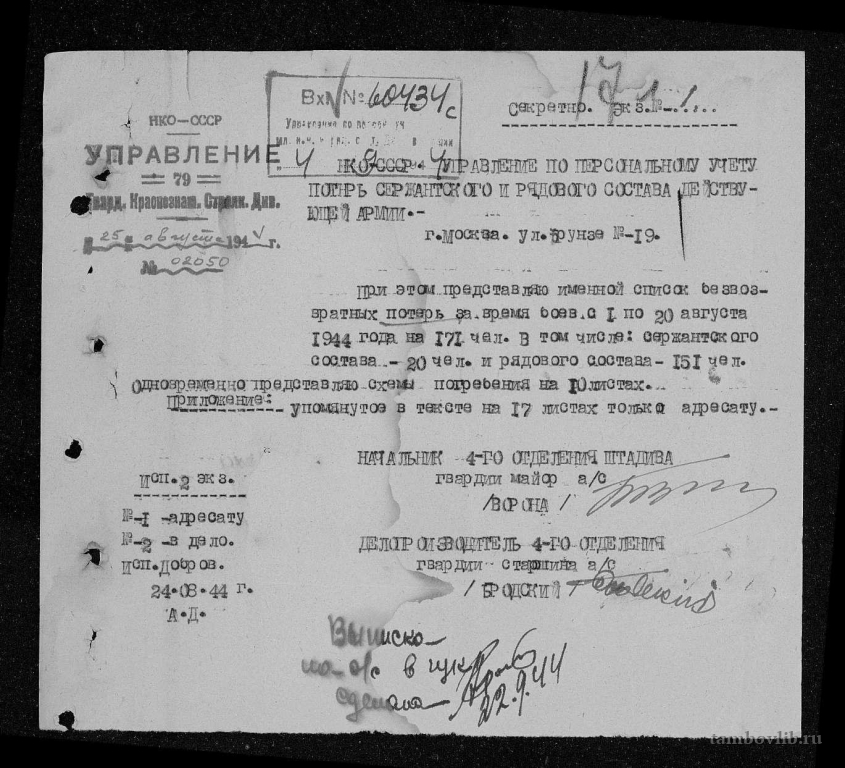 17
Вх. № 60434с
Управление по
Секретно. Экз.№-1...
НКО-СССР
УПРАВЛЕНИЕ
79
Гвард. Краснознам. Стрелк. Див.
"25" августа 1944 г.
№ 02050
НКО-СССР. УПРАВЛЕНИЕ ПО ПЕРСОНАЛЬНОМУ УЧЕТУ
ПОТЕРЬ СЕРЖАНТСКОГО И РЯДОВОГО СОСТАВА ДЕЙСТВУ-
ЮЩЕЙ АРМИИ.-
г.Москва. ул.Фрунзе №-19.
При этом представляю именной список безвоз-
вратных потерь за время боев с 1 по 20 августа
1944 года на 171 чел. В том числе: сержантского
состава - 20 чел. и рядового состава - 151 чел.
Одновременно представляю схемы погребения на 10 листах.
Приложение: упомянутое в тексте на 17 листах только адресату.-
НАЧАЛЬНИК 4-ГО ОТДЕЛЕНИЯ ШТАДИВА
гвардии майор а/с
/ВОРОНА/
ДЕЛОПРОИЗВОДИТЕЛЬ 4-ГО ОТДЕЛЕНИЯ
гвардии старшина а/с
/БРОДСКИЙ/
Исп.2 экз.
№-1 -адресату
№-2 -в дело.
Исп.Добров.
24-08-44 г.
А.Д.
Выписка
на о/с в
сделана
22.9.44
tambovlib.ru